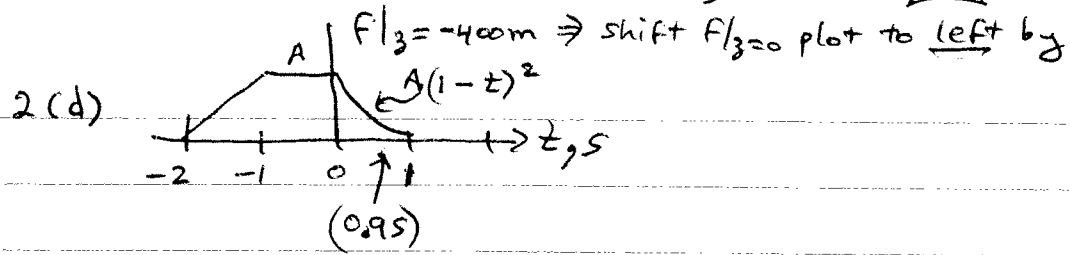 F|z=-400m ⇒ shift F|z=0 plot to left by
A
A(1-t)²
2(d)
t,s
-2 -1 0 1
(0.95)